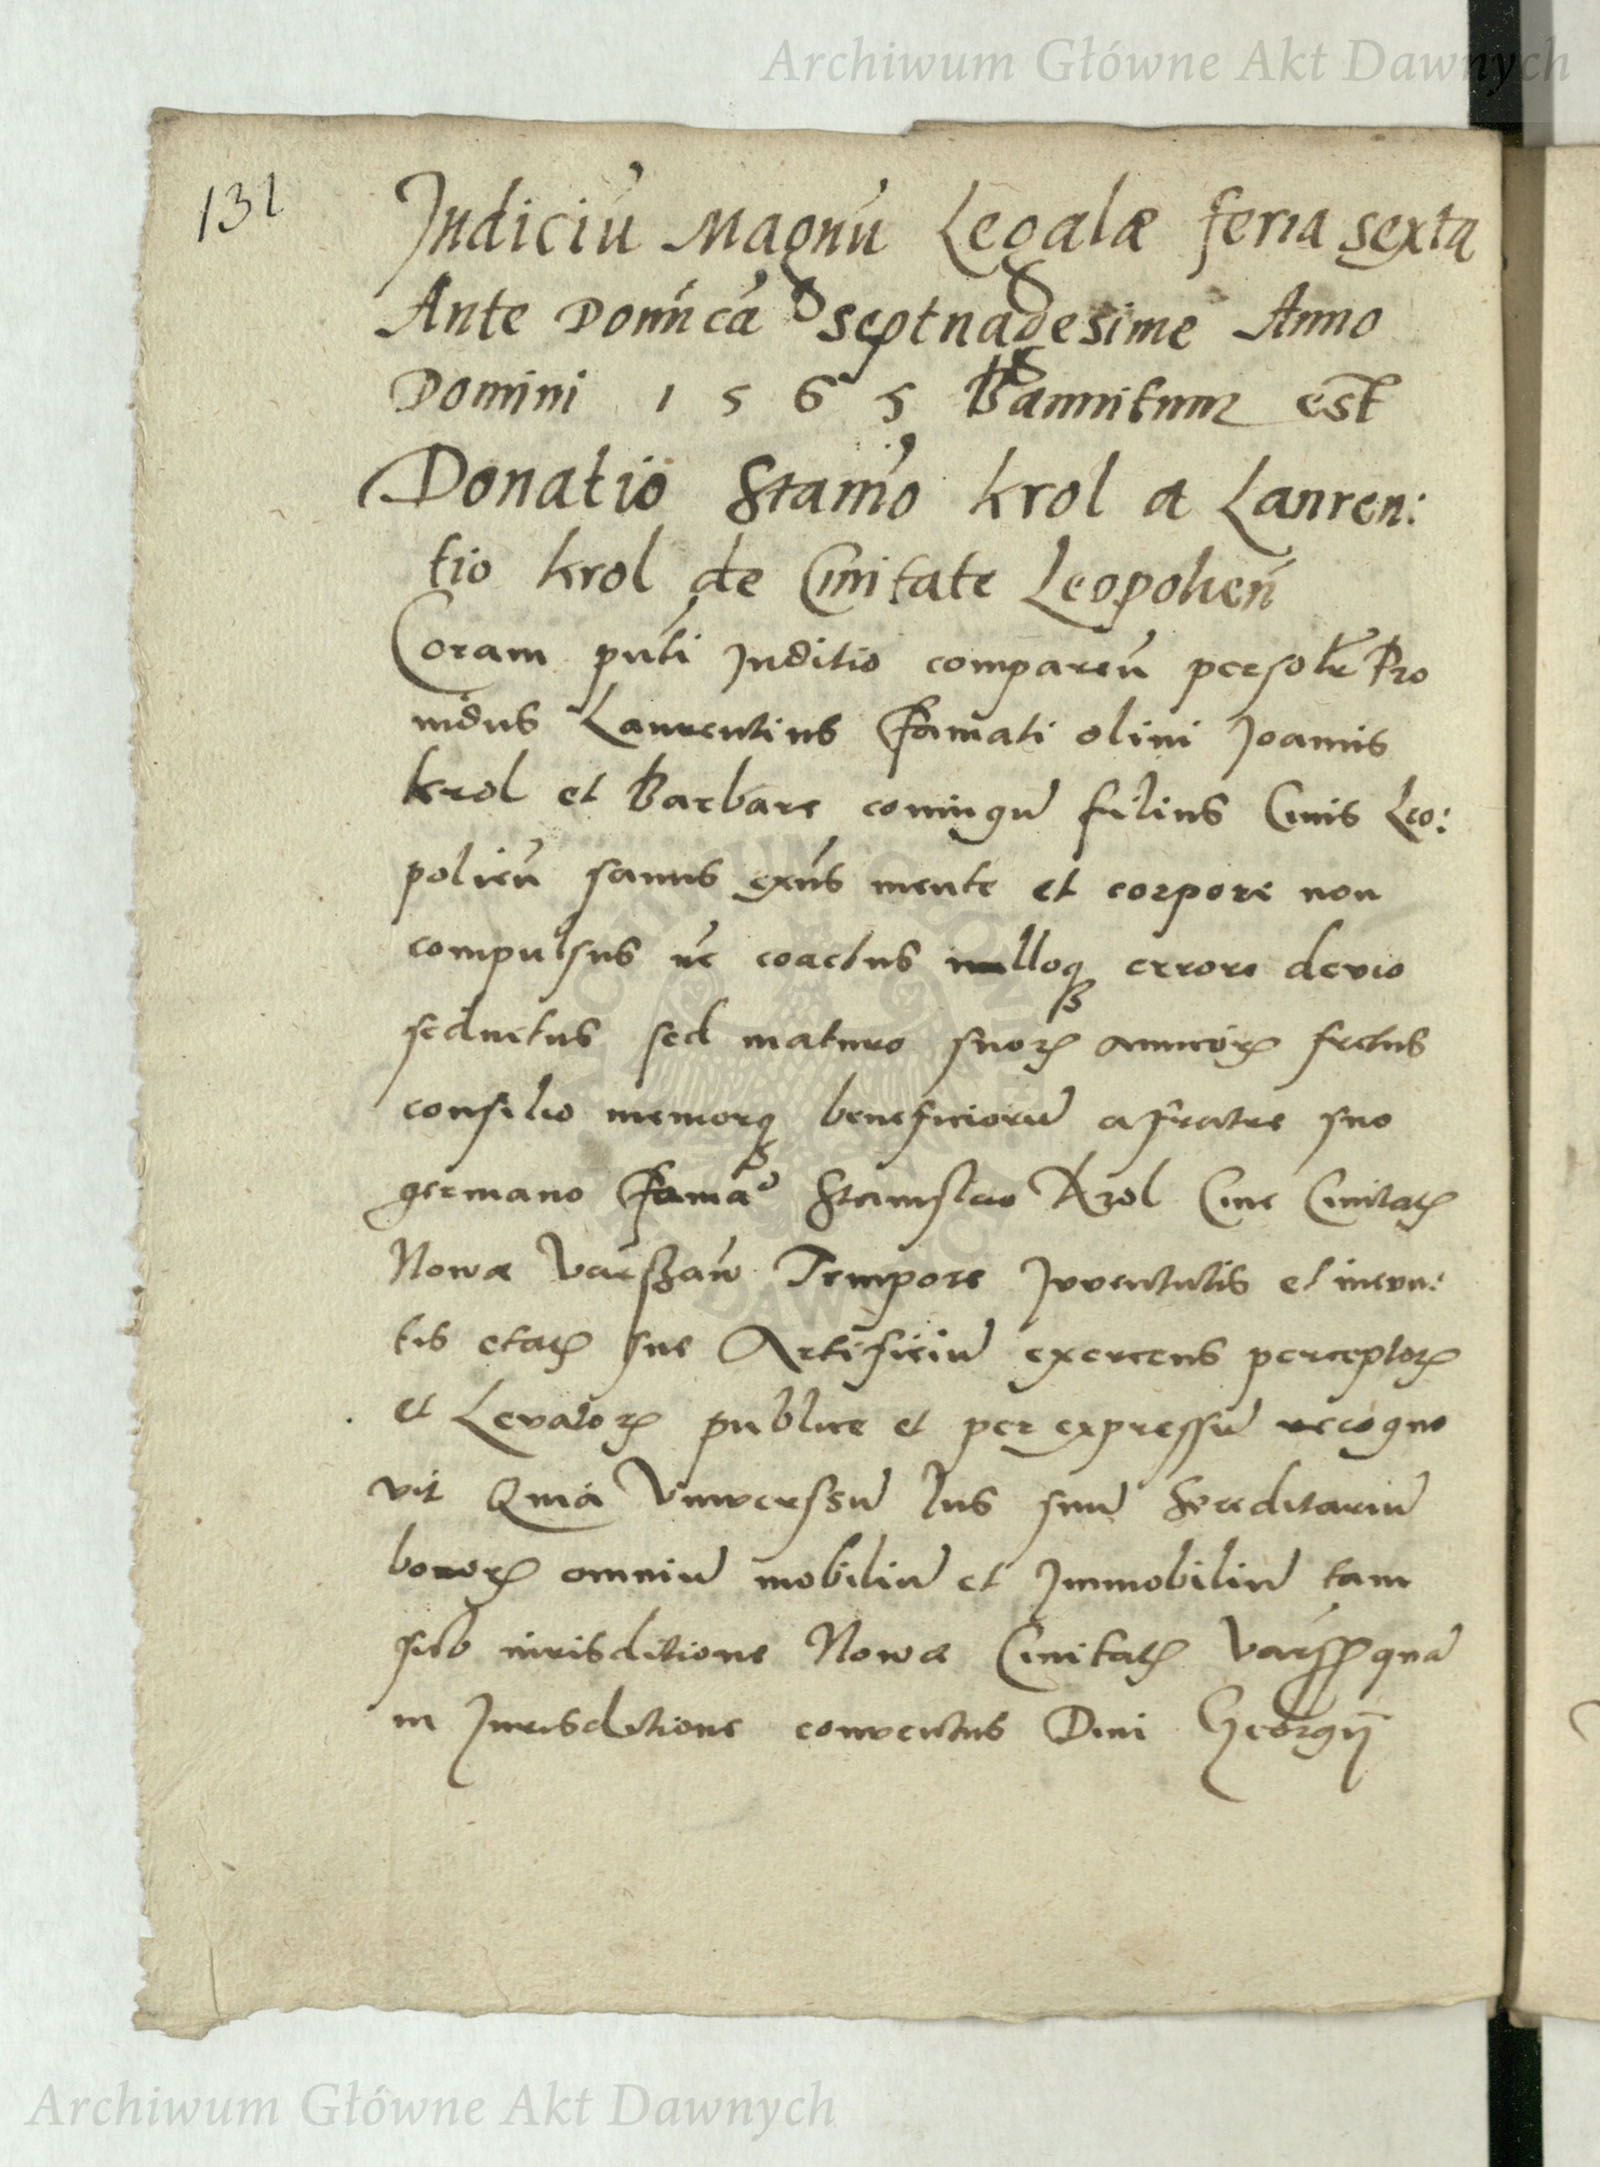 Archiwum Główne Akt Dawnych
131
Judiciũ Magnũ Legalæ feria sexta
Ante Domĩcã septnagesime Anno
Domini 1565 Bannitum est
Donatio Stanĩo Krol a Lauren:
tio Krol de Civitate Leopolieñ
Coram pñti Juditio compareñ persolr Pro
vidus Laurentius famati olim Joannis
Krol et Barbare coniugũ filius Civis Leo:
polieñ sanus exñs mente et corpore non
compulsus nec coactus nulloq errore devio
seductus sed maturo suorꝝ amicorꝝ fretus
consilio memorq beneficiorũ a fratre suo
germano famaᵒ Stanislao Krol Cive Civitatꝭ
Nowæ Varszaw̃ Tempore Juventutis et ineun:
tis etatꝭ sue Artificiũ exercens perceptorꝝ
et Levatorꝝ publice et per expressũ recogno
vit Quia Vniverssũ Jus suũ hereditariũ
bonorꝝ omniũ mobiliũ et Jmmobiliũ tam
sub iurisditione Nowæ Civitatꝭ Varss quã
in Jurisditione conventus Divi Georgij
Archiwum Główne Akt Dawnych